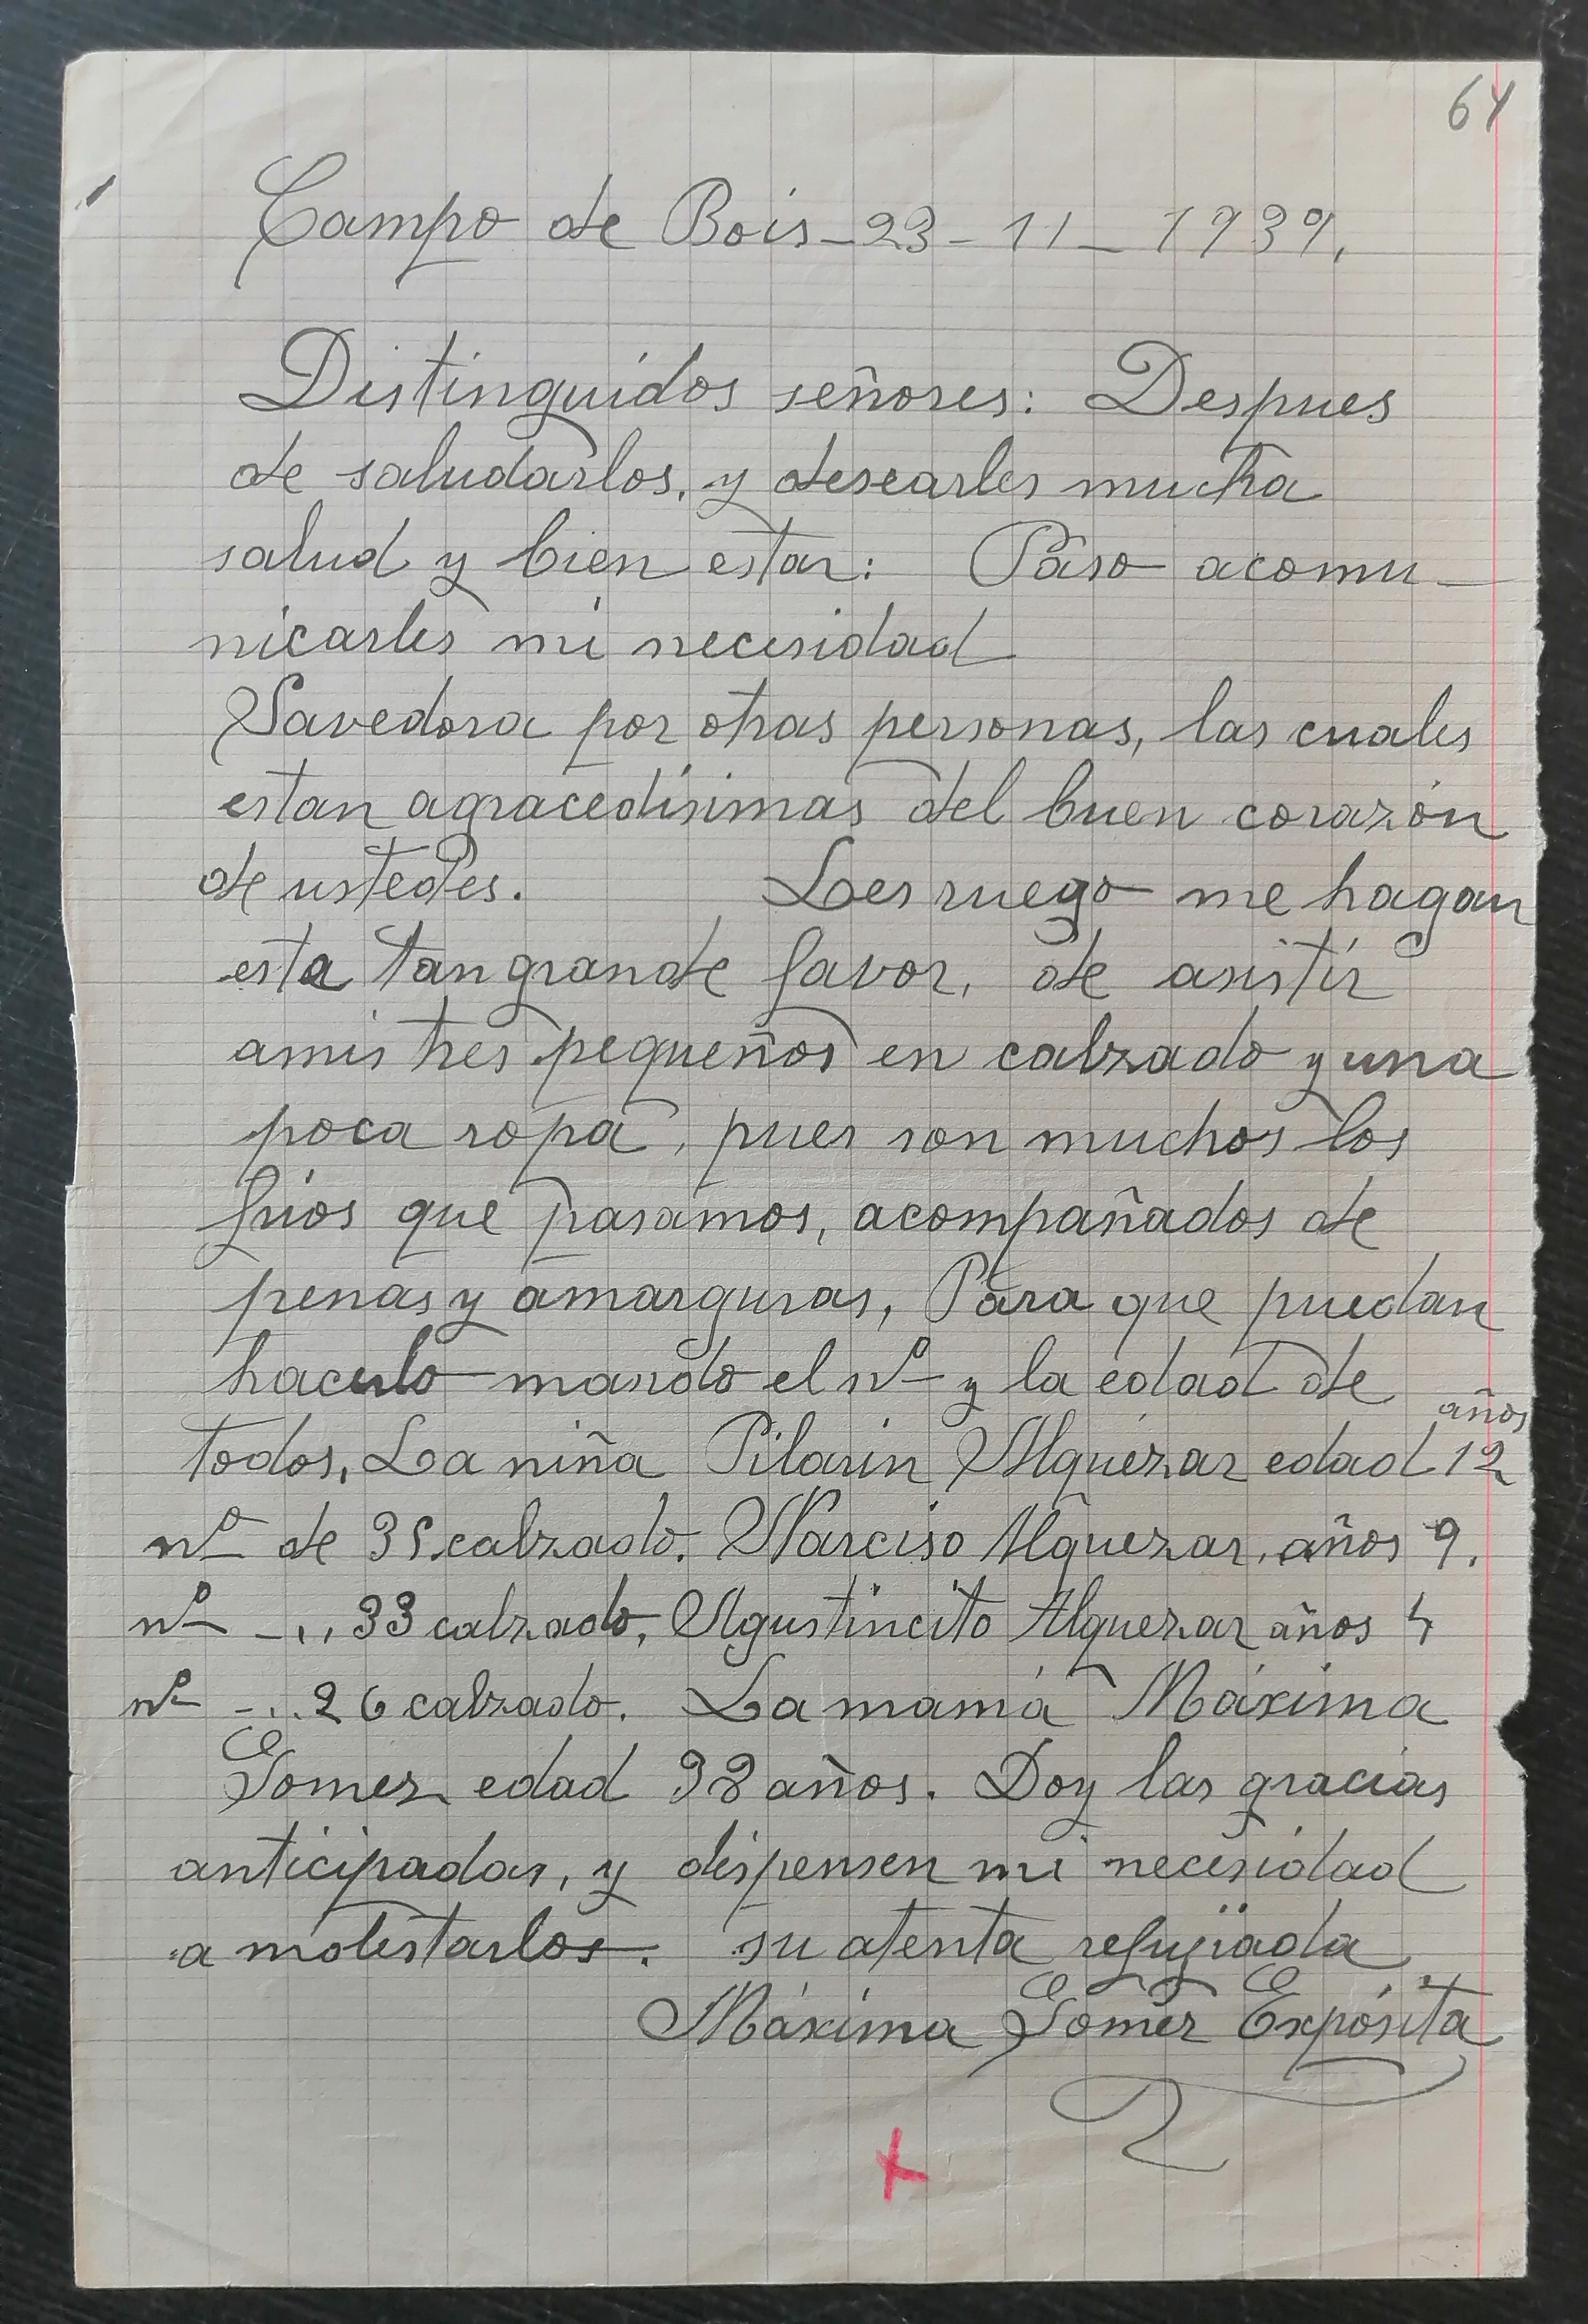 64
Campo de Bois - 23 - 11 - 1939.
Distinguidos señores: Despues
de saludarlos, y desearles mucha
salud y bien estar: Paso acomu-
nicarles mi necesidad
Savedora por otras personas, las cuales
estan agracedísimas del buen corazón
de ustedes. Les ruego me hagan
esta tan grande favor, de asistir
amis tres pequeños en calzado y una
poca ropa, pues son muchos los
frios que pasamos, acompañados de
penas y amarguras, Para que puedan
hacerlo mando el nº y la edad de
todos. La niña Pilarin Alquézar edad 12 años
nº de 35 calzado. Narciso Alquezar, años 9.
nº -.., 33 calzado, Agustincito Alquezar años 4
nº -... 26 calzado. La mamá Máxima
Gomez edad 38 años. Doy las gracias
anticipadas, y dispensen mi necesidad
a molestarlos. su atenta refujiada
Máxima Gómez Expósita